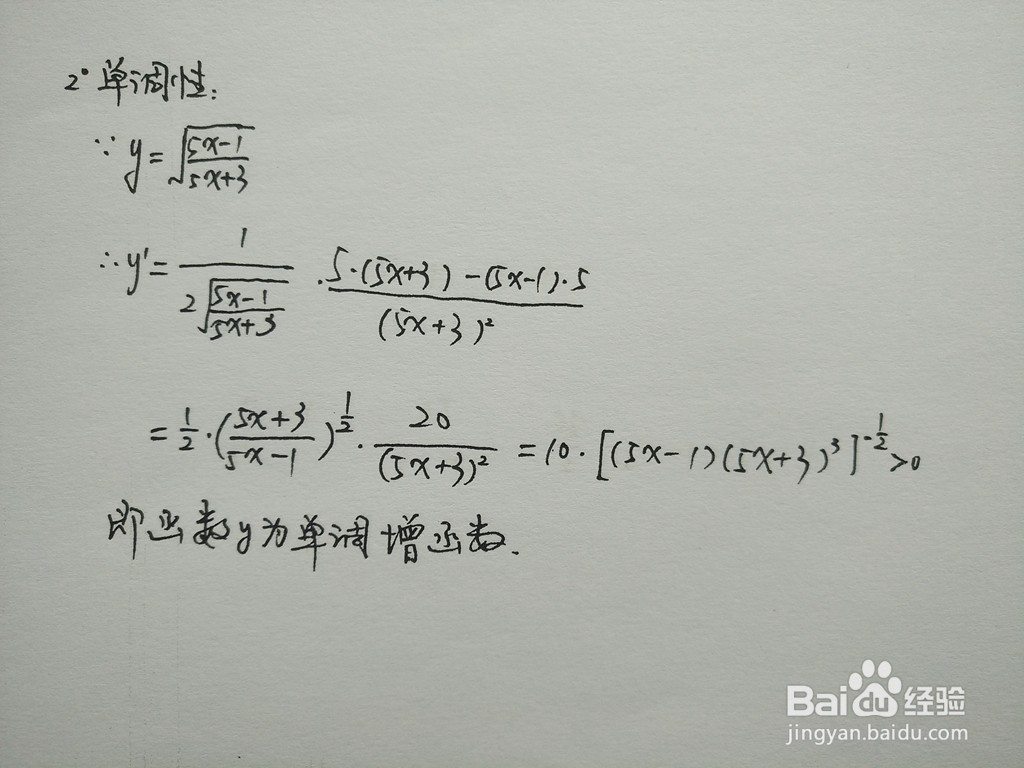 2° 单调性:
∵ y = √((5x-1)/(5x+3))
∴ y' = 1/(2√((5x-1)/(5x+3))) · (5·(5x+3)-(5x-1)·5)/(5x+3)²
= 1/2·((5x+3)/(5x-1))^(1/2) · 20/(5x+3)² = 10·[(5x-1)(5x+3)³]^(-1/2) >0
即函数y为单调增函数.
Bai 经验
jingyan.baidu.com